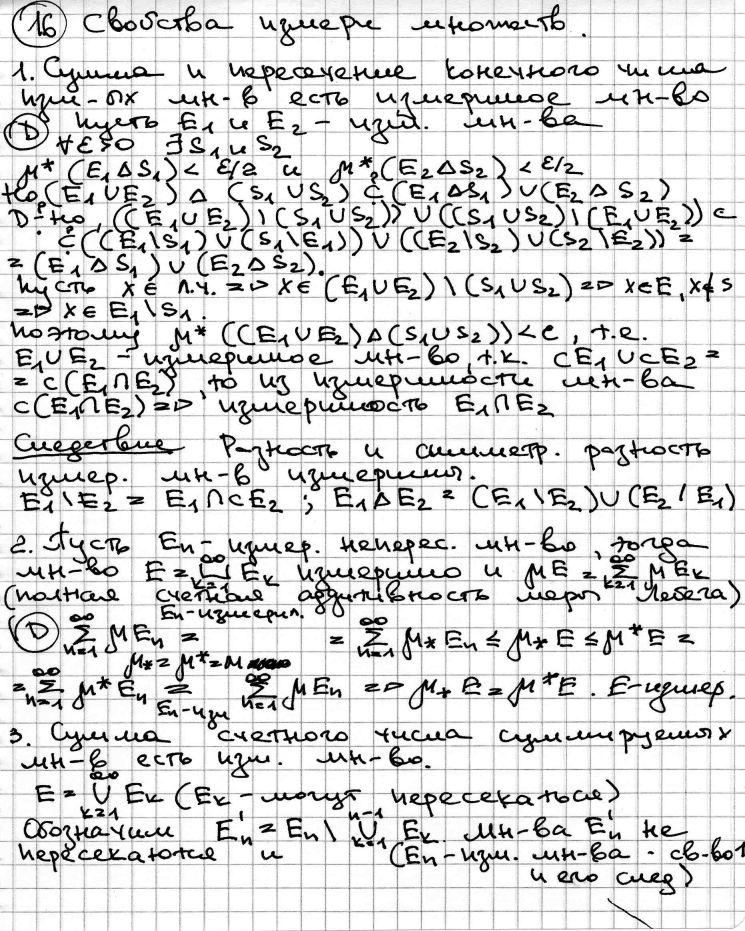 16 Свойства измери множеств.
1. Сумма и пересечение конечного числа
изм-ых мн-в есть измеримое мн-во
D Пусть E₁ и E₂ - изм. мн-ва
∀ε>0 ∃S₁ и S₂
μ*(E₁ΔS₁) < ε/2 и μ*(E₂ΔS₂) < ε/2
Но (E₁∪E₂) Δ (S₁∪S₂) ⊂ (E₁ΔS₁)∪(E₂ΔS₂)
((E₁∪E₂)\(S₁∪S₂)) ∪ ((S₁∪S₂)\(E₁∪E₂)) ⊂
⊂ ((E₁\S₁)∪(S₁\E₁)) ∪ ((E₂\S₂)∪(S₂\E₂)) =
= (E₁ΔS₁) ∪ (E₂ΔS₂).
Пусть x∈ л.ч. => x∈ (E₁∪E₂)\(S₁∪S₂) => x∈E, x∉S
=> x∈ E₁\S₁.
Поэтому μ*((E₁∪E₂)Δ(S₁∪S₂))<ε, т.е.
E₁∪E₂ - измеримое мн-во, т.к. CE₁∪CE₂ =
= C(E₁∩E₂), то из измеримости мн-ва
C(E₁∩E₂) => измеримость E₁∩E₂
Следствие Разность и симметр. разность
измер. мн-в измеримы.
E₁\E₂ = E₁∩CE₂ ; E₁ΔE₂ = (E₁\E₂)∪(E₂/E₁)
2. Пусть Eₙ - измер. неперес. мн-во, тогда
мн-во E = ⊔ₖ₌₁^∞ Eₖ измеримо и μE = Σₖ₌₁^∞ μEₖ
(полная счетная аддитивность меры Лебега)
D Σₙ₌₁^∞ μEₙ = Eₙ-измерим. μ_*=μ*=μ = Σₙ₌₁^∞ μ_*Eₙ ≤ μ_*E ≤ μ*E =
= Σₙ₌₁^∞ μ*Eₙ = Eₙ-изм Σₙ₌₁^∞ μEₙ => μ_*E = μ*E. E-измер.
3. Сумма счетного числа суммируемых
мн-в есть изм. мн-во.
E = ∪ₖ₌₁^∞ Eₖ (Eₖ - могут пересекаться)
Обозначим E'ₙ = Eₙ \ ∪ₖ₌₁ⁿ⁻¹ Eₖ. мн-ва E'ₙ не
пересекаются и (Eₙ-изм. мн-ва - св-во 1
и его след)